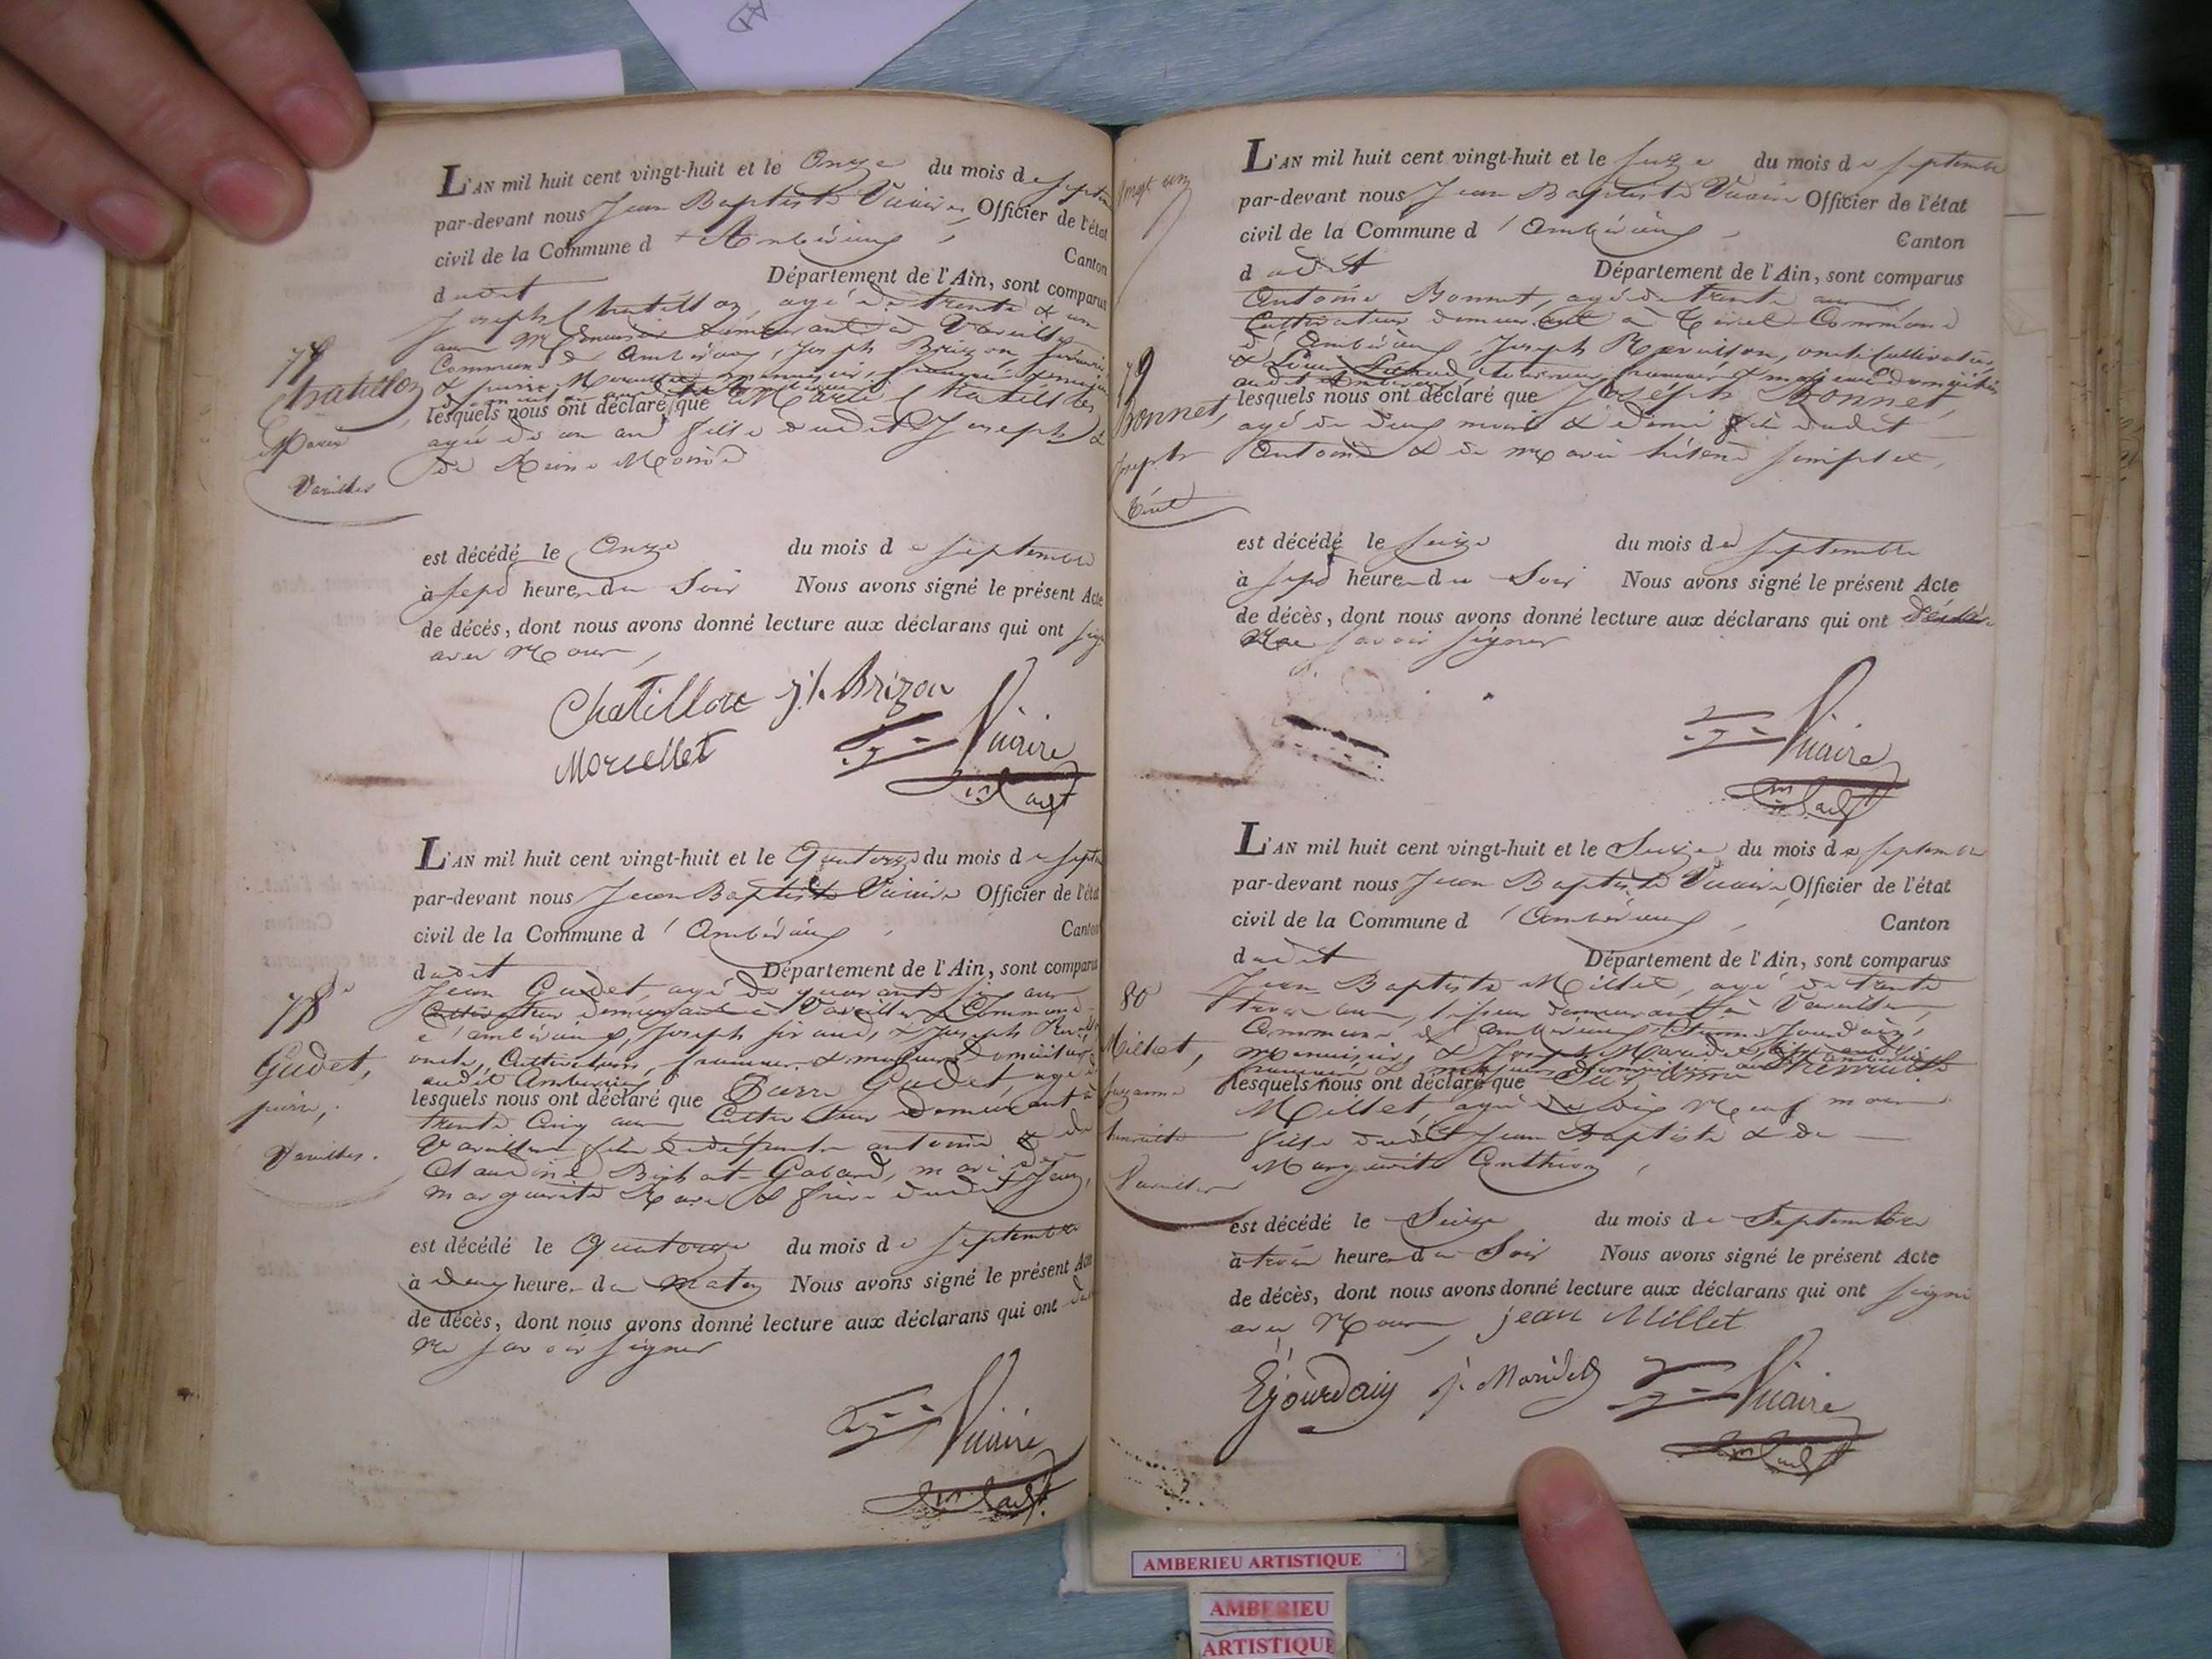 L'AN mil huit cent vingt-huit et le Onze du mois de septem
par-devant nous Jean Baptiste Vicaire, Officier de l'état
civil de la Commune d'Ambérieux, Canton
dudit Département de l'Ain, sont comparus
Joseph Chatillon, agé de trente & un
ans demeurant à Vareilles
Commune d'Ambérieux, Joseph Brizon,
& pierre
lesquels nous ont déclaré que Marie Chatillon
agée de un an fille dudit Joseph &
de Reine
77
Chatillon
Marie
Vareilles
est décédé le Onze du mois de septembre
à sept heures du Soir Nous avons signé le présent Acte
de décés, dont nous avons donné lecture aux déclarans qui ont sig
avec Nous,
Chatillon j.h Brizon
Morcellet Vicaire
L'AN mil huit cent vingt-huit et le Quatorze du mois de septem
par-devant nous Jean Baptiste Vicaire Officier de l'état
civil de la Commune d'Ambérieux, Canton
dudit Département de l'Ain, sont comparus
Jean Gudet, agé de quarante six ans
Cultivateur demeurant à Vareilles Commune
d'ambérieux, Joseph & Joseph
Cultivateurs, & majeurs domiciliés
audit Ambérieux
lesquels nous ont déclaré que Pierre Gudet, agé de
trente Cinq ans Cultivateur demeurant à
Vareilles fils de défunts antoine & de
Claudine mari de
marguerite & frère dudit Jean,
78
Gudet,
pierre,
Vareilles.
est décédé le Quatorze du mois de septembre
à deux heures du matin Nous avons signé le présent Acte
de décès, dont nous avons donné lecture aux déclarans qui ont
ne savoir signer
Vicaire
vingt un
L'AN mil huit cent vingt-huit et le seize du mois de septembre
par-devant nous Jean Baptiste Vicaire Officier de l'état
civil de la Commune d'Ambérieux, Canton
dudit Département de l'Ain, sont comparus
Antoine Bonnet, agé de trente ans
Cultivateur demeurant à Tiret Commune
d'Ambérieux, Joseph Ravillon, oncle Cultivateur,
&
lesquels nous ont déclaré que Joseph Bonnet,
agé de deux mois & demi fils dudit
Antoine & de marie
79
Bonnet,
Joseph
Tiret
est décédé le seize du mois de septembre
à sept heures du Soir Nous avons signé le présent Acte
de décès, dont nous avons donné lecture aux déclarans qui ont déclaré
Ne savoir signer
Vicaire
L'AN mil huit cent vingt-huit et le Seize du mois de septembre
par-devant nous Jean Baptiste Vicaire Officier de l'état
civil de la Commune d'Ambérieux, Canton
dudit Département de l'Ain, sont comparus
Jean Baptiste Millet, agé de trente
trois ans, demeurant à Vareilles,
Commune d'Ambérieux, Jourdain,
menuisier, & Joseph Maridet,
lesquels nous ont déclaré que Suzanne henriette
Millet, agée de dix Neuf mois
fille dudit Jean Baptiste & de
Marguerite
80
Millet,
suzanne
henriette
Vareilles
est décédé le Seize du mois de Septembre
à trois heures du Soir Nous avons signé le présent Acte
de décès, dont nous avons donné lecture aux déclarans qui ont signé
avec Nous, jean Millet
E jourdain j. Maridet Vicaire
AMBERIEU ARTISTIQUE
AMBERIEU
ARTISTIQUE